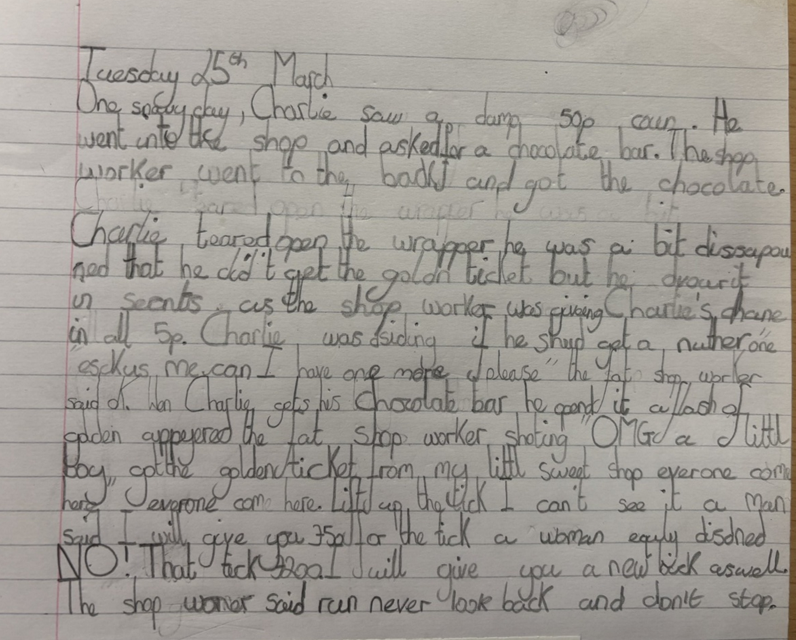 Tuesday 25th March
One day, Charlie saw a damp 50p coun. He
went into the shop and asked for a chocolate bar. The shop
worker went to the back and got the chocolate.
Charlie teared open the wrapper he was a bit
Charlie teared open the wrapper he was a bit dissapou
ned that he did't get the goldn ticket but he
in seconts. as the shop worker was giving Charlie's chane
in all 5p. Charlie was dsiding if he shud get a nuther one
"esckus me can I have one more please" the fat shop worker
said ok. wen Charlie gets his chocolate bar he it a flash of
golden appeyered the fat shop worker shoting "OMG a littl
boy got the golden ticket from my little sweet shop everone com
here everone com here. Lift up the tick I can't see it a man
said I will give you for the tick a woman
NO! That tick I will give you a new bick aswell.
The shop worker said run never look back and don't stop.